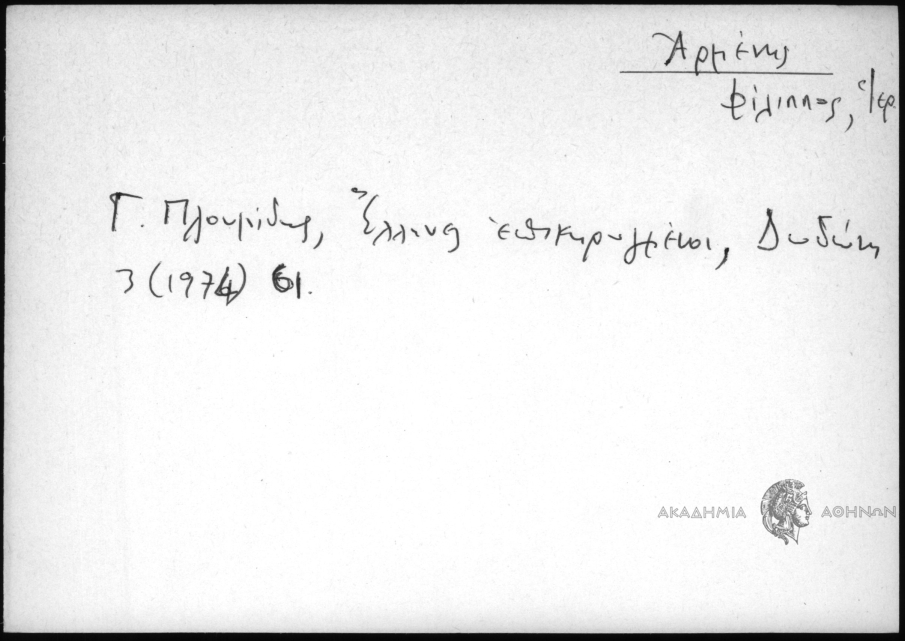 Ἀρμένης
Φίλιππος, Ἱερ.
Γ. Πλουμίδης, Ἕλληνες ἐπικηρυγμένοι, Δωδώνη
3 (1974) 61.
ΑΚΑΔΗΜΙΑ ΑΘΗΝΩΝ